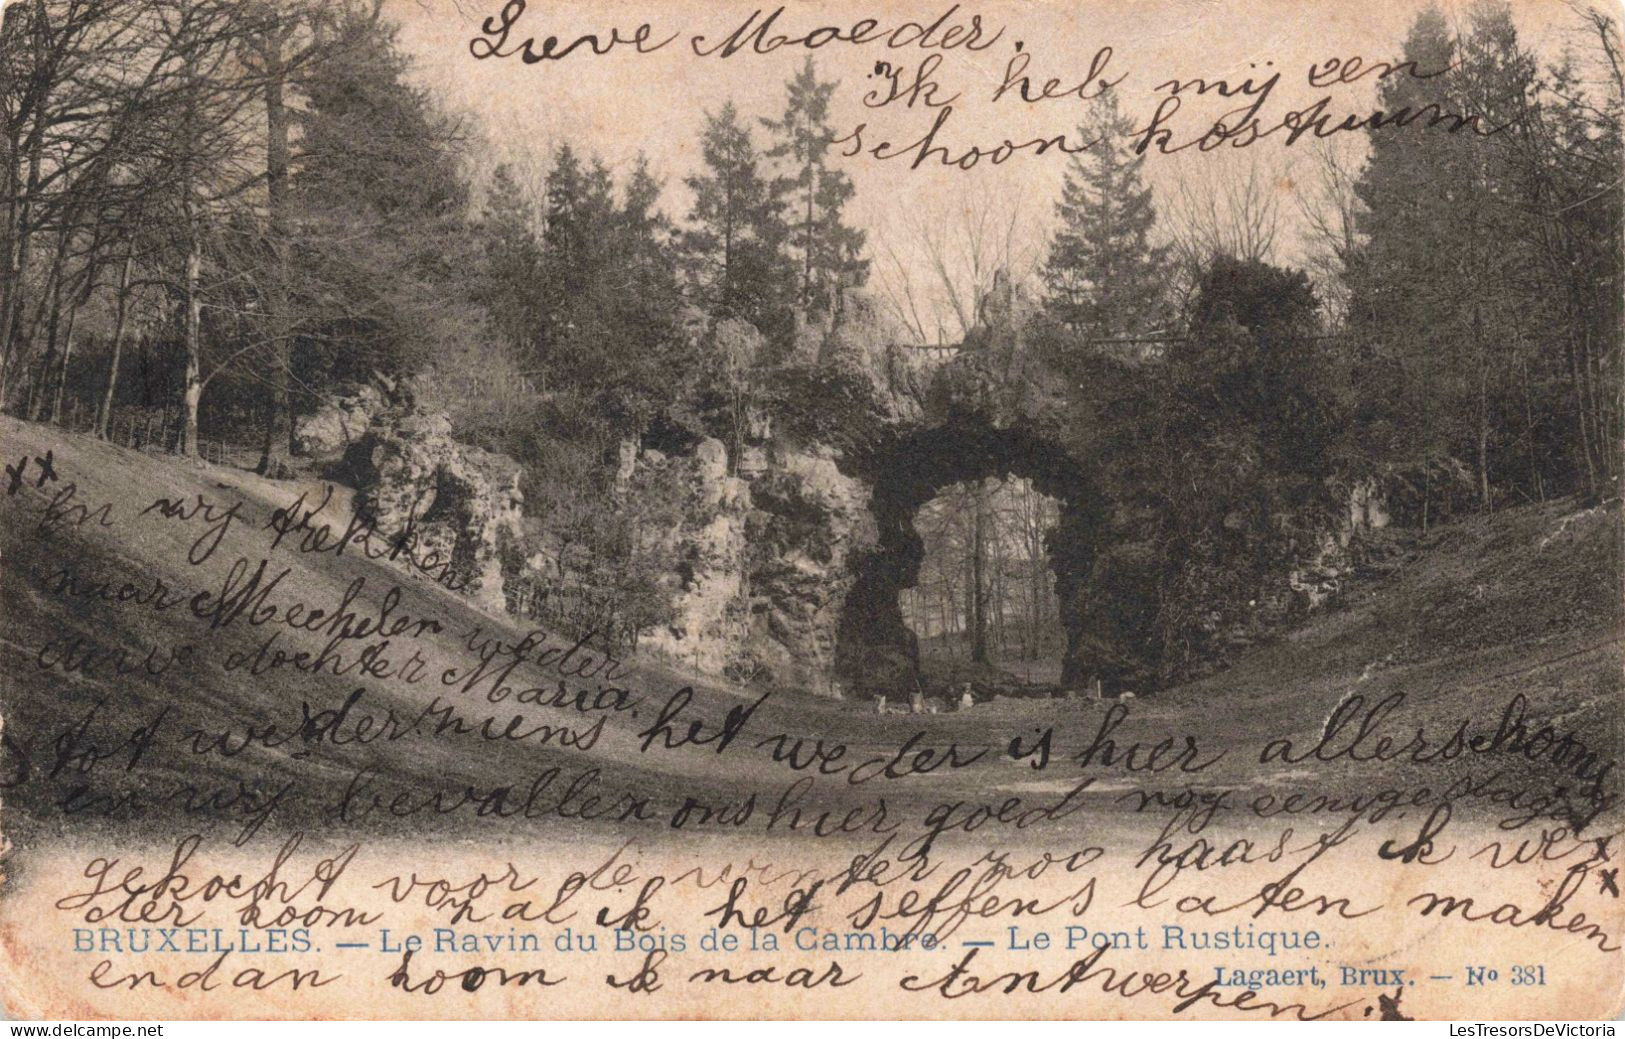 Lieve Moeder.
Ik heb mij een
schoon kostuum
gekocht voor de winter zoo haast ik we
der koom zal ik het seffens laten maken
endan koom ik naar Antwerpen. x
x x
En wij trekken
naar Mechelen weder
dochter Maria
tot weder ziens het weder is hier allerschoons
en wij bevallen ons hier goed nog eenige dagen
x
x
BRUXELLES. — Le Ravin du Bois de la Cambre. — Le Pont Rustique.
Lagaert, Brux. — No 381
LesTresorsDeVictoria